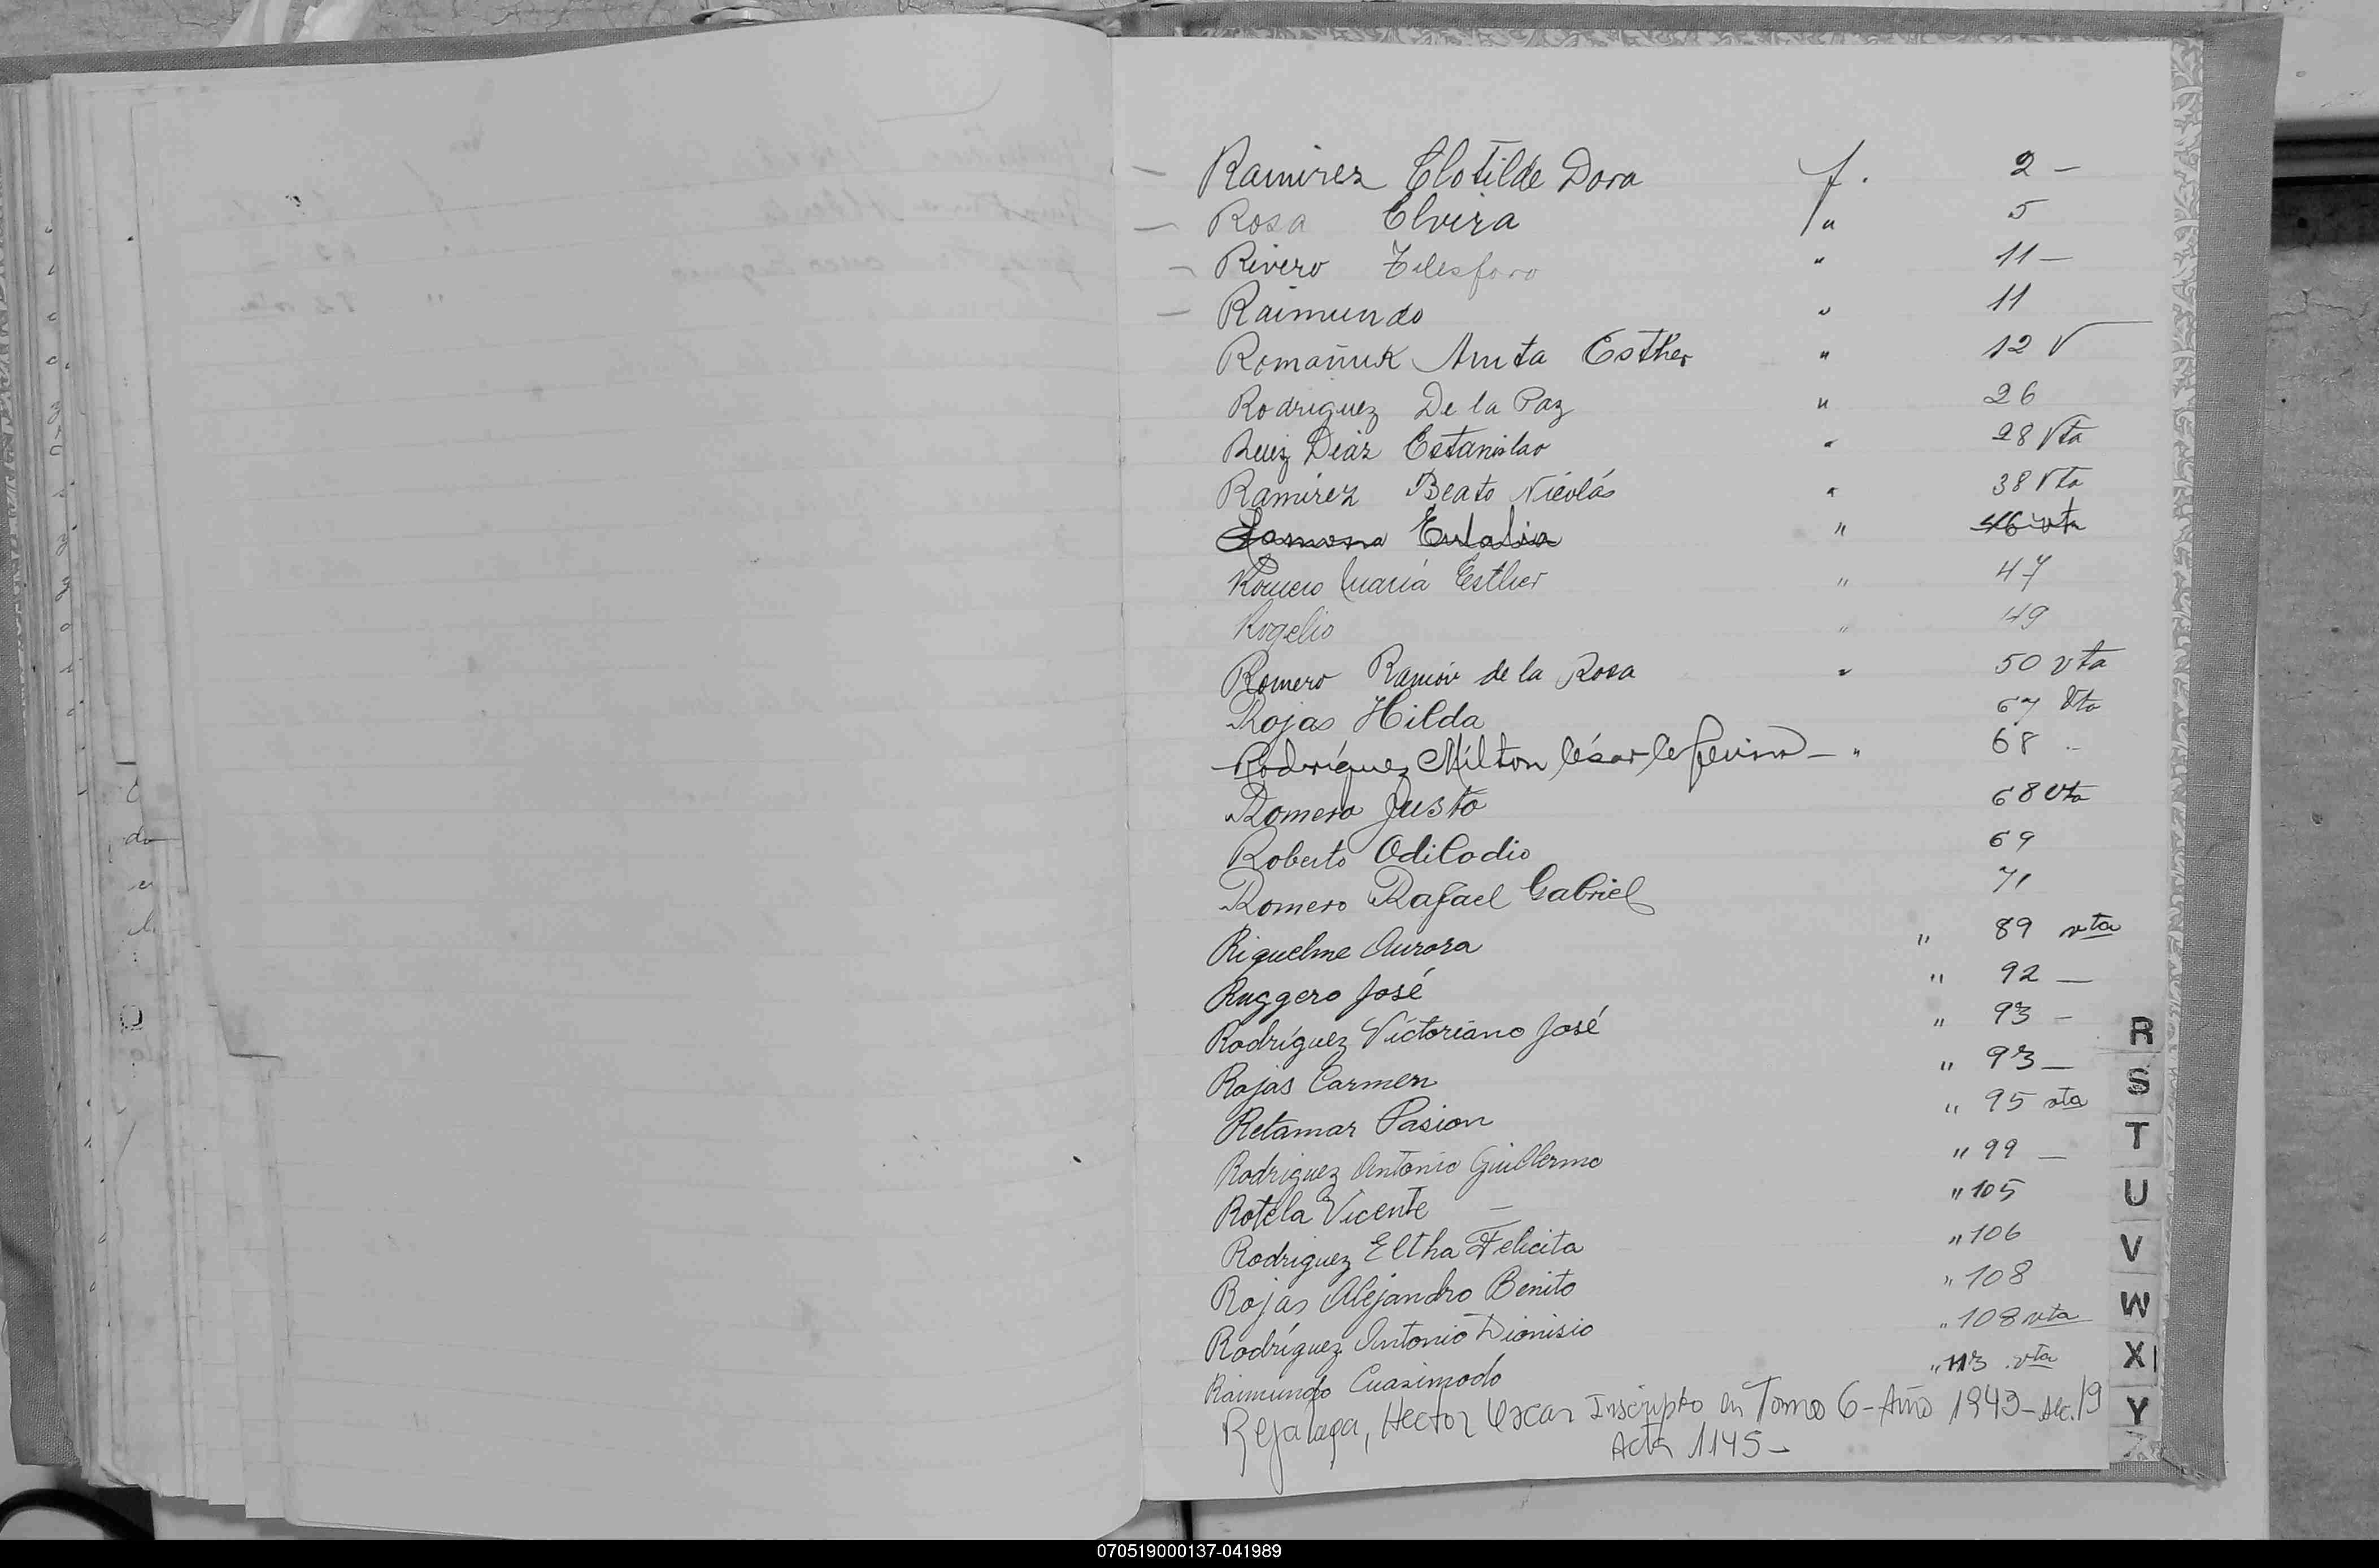 Ramirez Clotilde Dora f. 2 -
Rosa Elvira " 5
Rivero Telesforo " 11 -
Raimundo " 11
Romañuk Anita Esther " 12 v
Rodriguez De la Paz " 26
Ruiz Diaz Estanislao " 28 Vta
Ramirez Beato Nicolás " 38 Vta
Ramona Eulalia " 46 vta
Romero Maria Esther " 47
Rogelio " 49
Romero Ramón de la Rosa " 50 vta
Rojas Hilda 67 Vta
Rodríguez Milton César " 68
Romero Justo 68 Vta
Roberto Odilodio 69
Romero Rafael Gabriel 71
Riquelme Aurora " 89 vta
Ruggero José " 92 -
Rodríguez Victoriano José " 93 -
Rojas Carmen " 93 -
Retamar Pasion " 95 vta
Rodriguez Antonio Guillermo " 99 -
Rotela Vicente - " 105
Rodriguez Eltha Felicita " 106
Rojas Alejandro Benito " 108
Rodríguez Antonio Dionisio " 108 vta
Raimundo Cuasimodo " 113 vta
Rejalaga, Hector Oscar Inscripto en Tomo 6 - Año 1943 - Sec. 19
Acta 1145 -
R
S
T
U
V
W
X
Y
Z
070519000137-041989